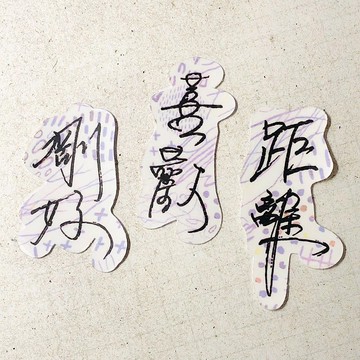 距離
喜歡
剛好